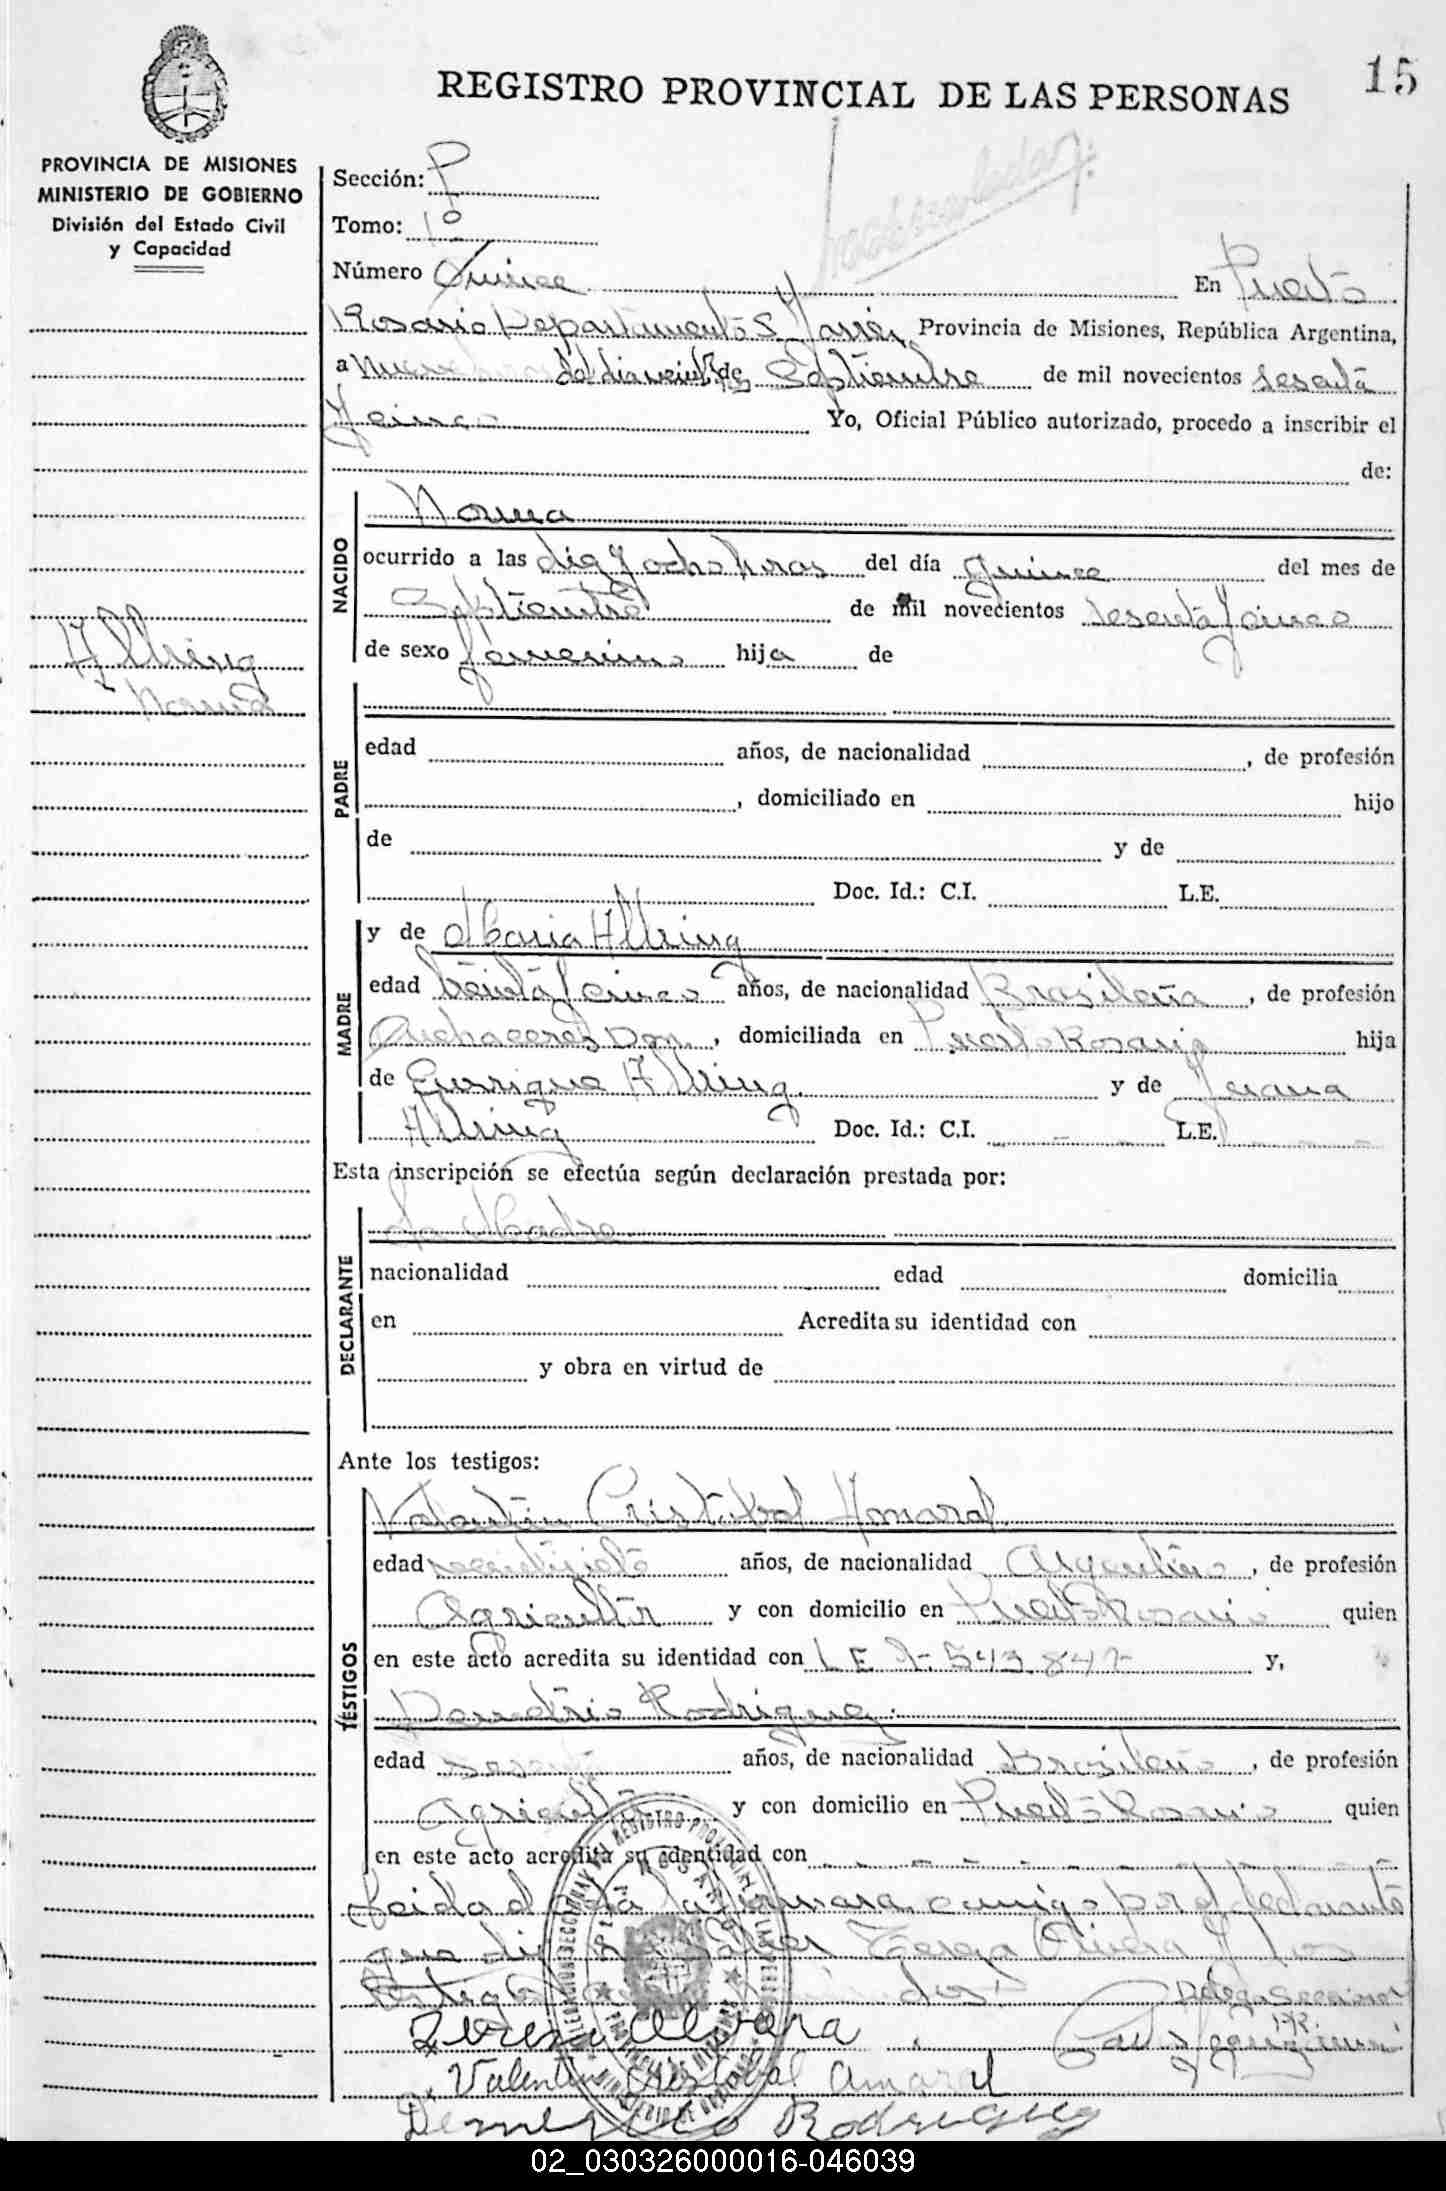 15
REGISTRO PROVINCIAL DE LAS PERSONAS
PROVINCIA DE MISIONES
MINISTERIO DE GOBIERNO
División del Estado Civil
y Capacidad
Sección: P
Tomo: 1º
Número Quince En Puerto
Rosario Departamento S. Javier Provincia de Misiones, República Argentina,
a nueve de Septiembre de mil novecientos sesenta
y cinco Yo, Oficial Público autorizado, procedo a inscribir el
de:
NACIDO
Norma
ocurrido a las diez y ocho horas del día quince del mes de
Septiembre de mil novecientos sesenta y cinco
de sexo femenino hija de
Allring
Norma
PADRE
edad años, de nacionalidad , de profesión
, domiciliado en hijo
de y de
Doc. Id.: C.I. L.E.
MADRE
y de Maria Allring
edad treinta y cinco años, de nacionalidad Brasileña, de profesión
Quehaceres Dom., domiciliada en Puerto Rosario hija
de Enrrique Allring y de Juana
Allring Doc. Id.: C.I. L.E.
Esta inscripción se efectúa según declaración prestada por:
DECLARANTE
La Madre
nacionalidad edad domicilia
en Acredita su identidad con
y obra en virtud de
Ante los testigos:
TESTIGOS
Valentin Cristobal Amaral
edad años, de nacionalidad Argentino, de profesión
Agricultor y con domicilio en Puerto Rosario quien
en este acto acredita su identidad con L E 7.543.847- y,
Demetrio Rodriguez
edad años, de nacionalidad Brasileño, de profesión
Agricultor y con domicilio en Puerto Rosario quien
en este acto acredita su identidad con
Leida el acta la firmara conmigo por el declarante
que Teresa Olivera y los
testigos
Valentin Cristobal Amaral
Demetrio Rodriguez
02_030326000016-046039